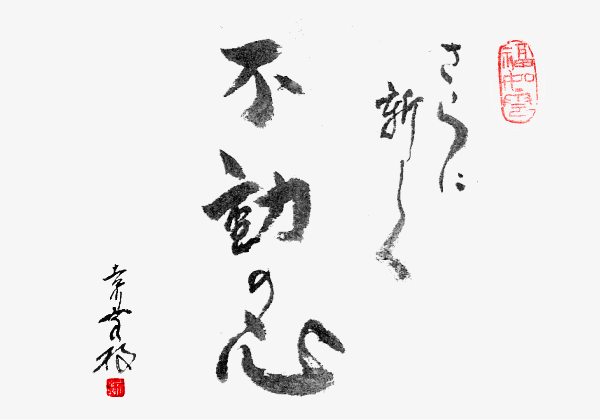 さらに
新しく
不動の心